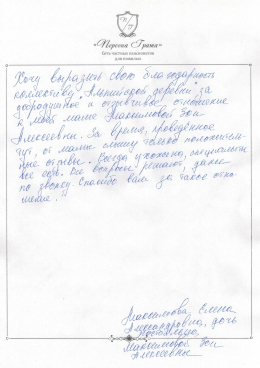 «Персона Грата»
Сеть частных пансионатов
для пожилых
Хочу выразить свою благодарность
коллективу "Альпийской деревни" за
добродушное и отзывчивое отношение
к моей маме Максимовой Зои
Алексеевны. За время, проведённое
тут, от мамы слышу только положитель-
ные отзывы. Всегда ухожена,
все есть. Все вопросы решают, даже
по звонку. Спасибо Вам за такое отно-
шение!
Максимова Елена
Александровна, дочь
Максимовой Зои
Алексеевны